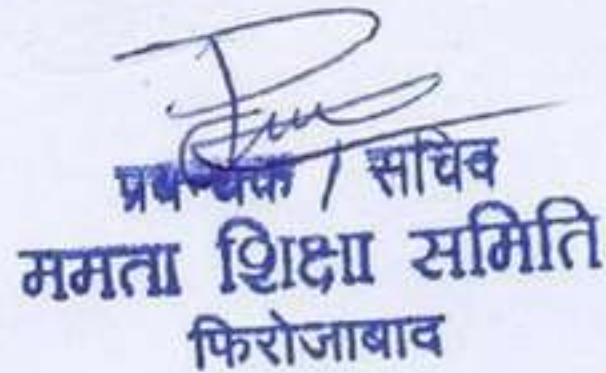 प्रबन्धक / सचिव
ममता शिक्षा समिति
फिरोजाबाद